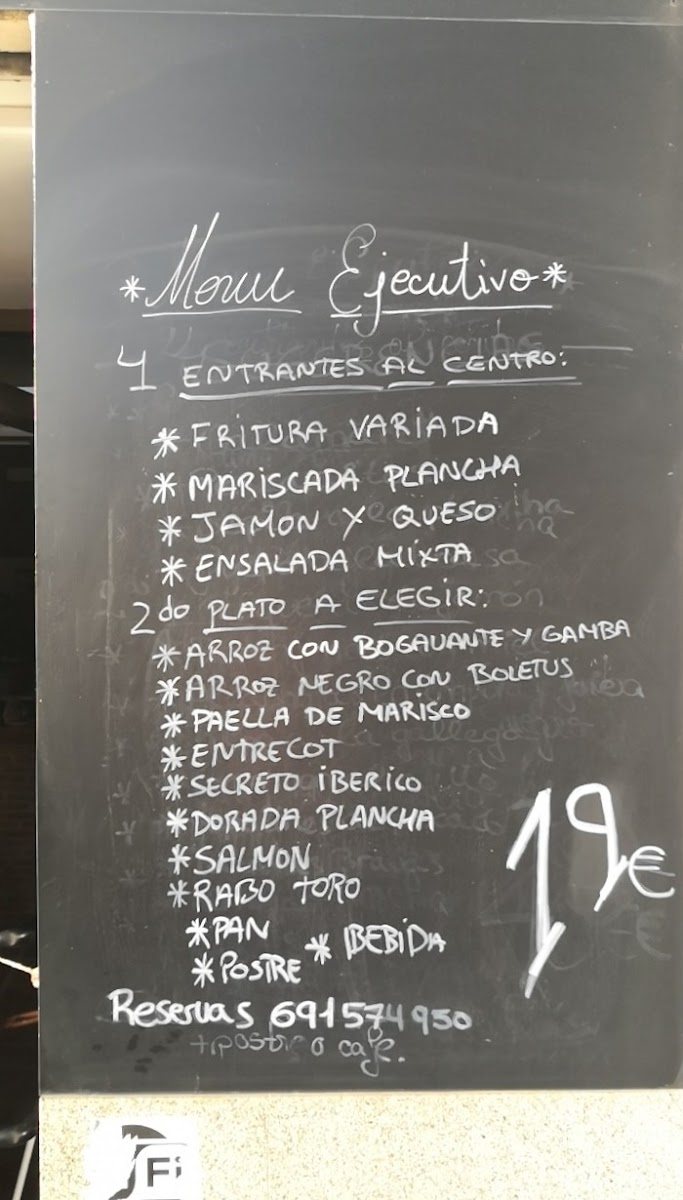 *Menu Ejecutivo*
4 ENTRANTES AL CENTRO:
* FRITURA VARIADA
* MARISCADA PLANCHA
* JAMON Y QUESO
* ENSALADA MIXTA
2do PLATO A ELEGIR:
* ARROZ CON BOGAVANTE Y GAMBA
* ARROZ NEGRO CON BOLETUS
* PAELLA DE MARISCO
* ENTRECOT
* SECRETO IBERICO
* DORADA PLANCHA
* SALMON
* RABO TORO
19€
* PAN
* BEBIDA
* POSTRE
Reservas 691574950
+ postre o café.
Fi